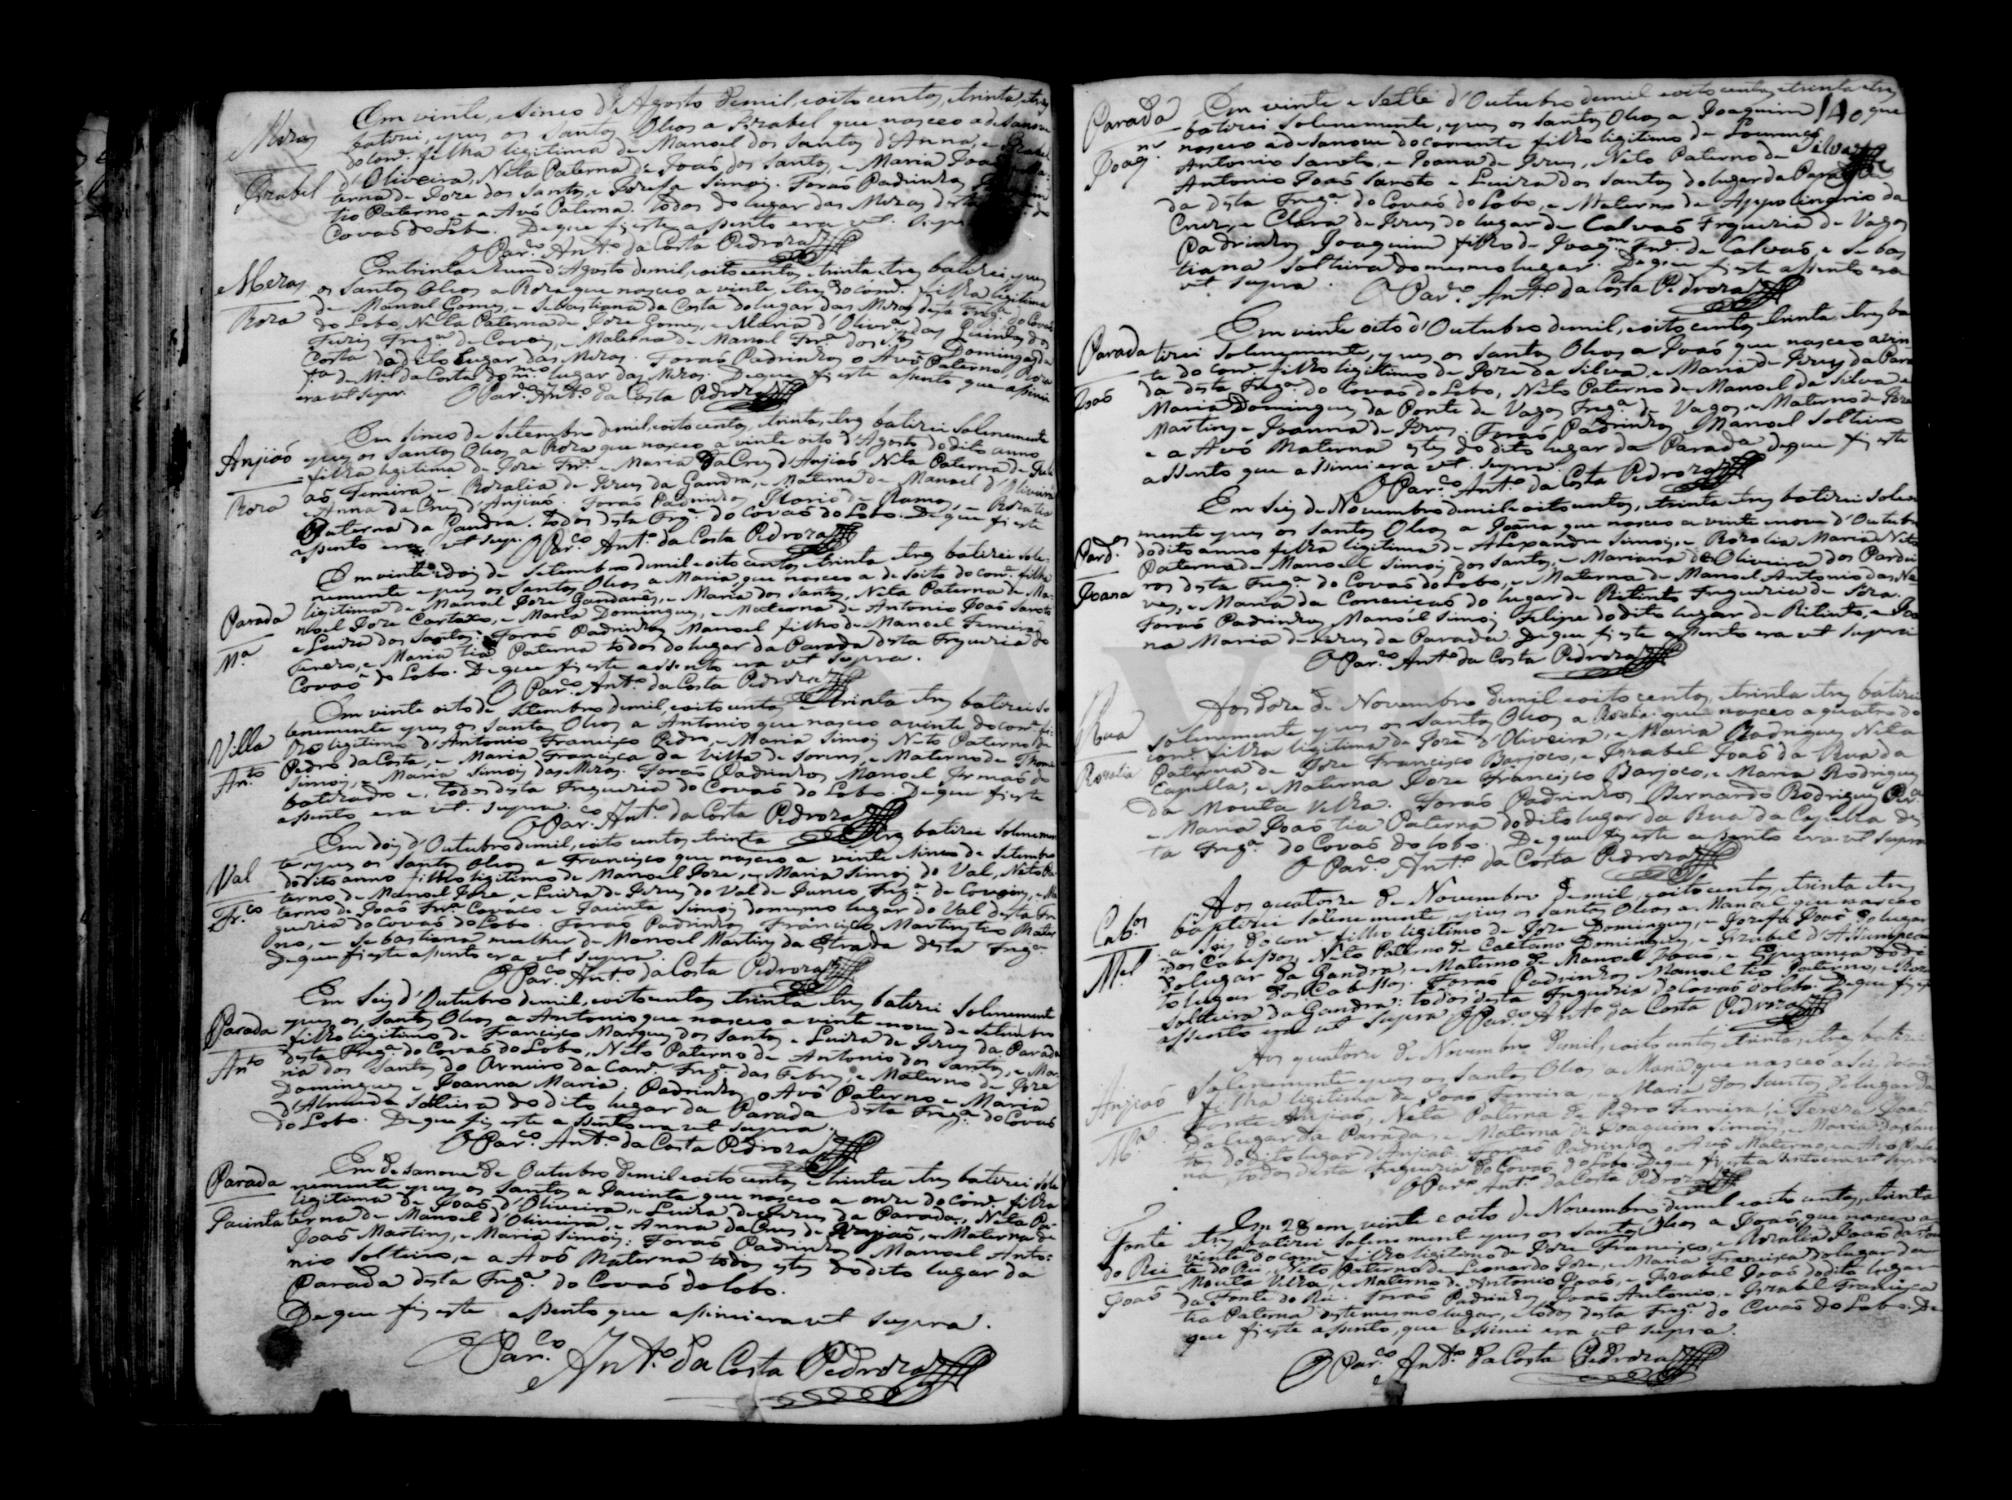 Mezas
Izabel
Em vinte, e sinco d'Agosto de mil, e oito centos, e trinta e tres
batizei, e puz os Santos Oleos a Izabel que nasceo a desanove
do corre. filha legitima de Manoel dos Santos d'Anna, e Izabel
d'Oliveira, Neta Paterna de Joaõ dos Santos, e Maria
terna de Joze dos Santos, e Josefa Simoiz. Foraõ Padrinhos
tio Paterno, e a Avó Paterna. todos do lugar das Mezas desta
Covaõ do Lobo. De que fiz este assento era ut supra
O Par.co Ant.o da Costa Pedroza
Mezas
Roza
Em trinta e hum d'Agosto de mil, e oito centos, e trinta e tres batizei, e puz
os Santos Oleos a Roza que nasceo a vinte, e tres do corre. filha legitima
de Manoel Gomes, e Sebastiana da Costa do lugar das Mezas desta Freg.a do Covaõ
do Lobo, Neta Paterna de Joze Gomes, e Maria d'Olivr.a das Quintas dos
Freg.a de Covoiz, e Materna de Manoel Frr.a dos S.tos e Domingas da
Costa do dito lugar das Mezas. Foraõ Padrinhos o Avô Paterno, e Roza
f.a de M.el da Costa do m.mo lugar das Mezas. De que fiz este assento que assinei
era ut supra. O Par.co Ant.o da Costa Pedroza
Anjiaõ
Roza
Em sinco de Setembro de mil, e oito centos, e trinta, e tres batizei solenemente
e puz os Santos Oleos a Roza que nasceo a vinte oito d'Agosto do dito anno
filha legitima de Joze Frr.a e Maria da Cruz d'Anjiaõ Neta Paterna de
Ferreira, e Rozalia de Jezus da Gandra, e Materna de Manoel d'Oliveira
e Anna da Cruz d'Anjiaõ. Foraõ Padrinhos Ramos, e Roza tia
Paterna da Gandra. todos desta Freg.a do Covaõ do Lobo. De que fiz este
assento era ut supra O Par.co Ant.o da Costa Pedroza
Parada
M.a
Em vinte e dois de Setembro de mil e oito centos e trinta e tres batizei sole-
nemente e puz os Santos Oleos a Maria que nasceo a de soito do corre. filha
legitima de Manoel Joze Gandarês, e Maria dos Santos, Neta Paterna de Ma-
noel Joze Cartaxo, e Maria Domingues, e Materna de Antonio Joaõ Sancto
e Luiza dos Santos. Foraõ Padrinhos Manoel filho de Manoel Ferreira
e Maria tia Paterna todos do lugar da Parada desta Freguezia do
Covaõ do Lobo. De que fiz este assento era ut supra.
O Par.co Ant.o da Costa Pedroza
Villa
An.to
Em vinte oito de Setembro de mil e oito centos e trinta e tres batizei so-
lenemente e puz os Santos Oleos a Antonio que nasceo a vinte do corre. fi-
lho legitimo d'Antonio Francisco Pedro, e Maria Simoiz Neto Paterno de
Pedro da Costa, e Maria Francisca da Villa de Soruz, e Materno de Thome
Simoiz, e Maria Simoiz das Mezas. Foraõ Padrinhos Manoel Irmaõ do
batizado e, todos desta Freguezia do Covaõ do Lobo. De que fiz este
assento era ut supra. O Par.co Ant.o da Costa Pedroza
Val
Fr.co
Em dois d'Outubro de mil, e oito centos, e trinta e tres batizei solenemen-
te, e puz os Santos Oleos a Francisco que nasceo a vinte e sinco de Setembro
do dito anno filho legitimo de Manoel Joze, e Maria Simoiz do Val, Neto Pa-
terno de Manoel Joze, e Luiza de Jezus do Val de Junco Freg.a de e Ma-
terno de Joaõ Frr.a Covaco e Jacinta Simoiz do mesmo lugar do Val desta Fre-
guezia do Covaõ do Lobo. Foraõ Padrinhos Francisco Martins tio Mater-
no, e Sebastiana mulher de Manoel Martins da Estrada desta Freg.a
De que fiz este assento era ut supra.
O Par.co Ant.o da Costa Pedroza
Parada
An.to
Em seis d'Outubro de mil, e oito centos, e trinta e tres batizei solenemente
e puz os Santos Oleos a Antonio que nasceo a vinte nove de Setembro
filho legitimo de Francisco Marques dos Santos e Luiza de Jezus da Parada
desta Freg.a do Covaõ do Lobo, Neto Paterno de Antonio dos Santos, e Ma-
ria dos Santos do Arneiro da Freg.a das Febres, e Materno de Joze
Domingues e Joanna Maria. Padrinhos o Avô Paterno e Maria
d'Almeida solteira do dito lugar da Parada desta Freg.a do Covaõ
do Lobo. De que fiz este assento era ut supra.
O Par.co Ant.o da Costa Pedroza
Parada
Jacinta
Em desanove de Outubro de mil e oito centos e trinta e tres batizei sole
nemente e puz os Santos a Jacinta que nasceo a onze do corre. filha
legitima de Joaõ d'Oliveira, e Luiza de Jezus da Parada, Neta Pa-
terna de Manoel d'Oliveira, e Anna da Cruz de Anjiaõ, e Materna de
Joaõ Martins, e Maria Simoiz. Foraõ Padrinhos Manoel Anto-
nio solteiro, e a Avó Materna todos estes do dito lugar da
Parada desta Freg.a do Covaõ do Lobo.
De que fiz este assento que assinei era ut supra.
O Par.co Ant.o da Costa Pedroza
Parada
Joaq.m
Em vinte e sette d'Outubro de mil e oito centos, e trinta e tres
140
batizei solenemente, e puz os Santos Oleos a Joaquim, que
nasceo a desanove do corrente filho legitimo de Lourenço
Antonio Sancto, e Joana de Jezus, Neto Paterno de
Silva
Antonio Joaõ Sancto e Luiza dos Santos do lugar da Para-
da desta Freg.a do Covaõ do Lobo, e Materno de Appolinario da
Cruz, e Clara de Jezus do lugar de Calvaõ Freguezia de Vagos
Padrinhos Joaquim filho de Joaq.m Frr.a de Calvaõ e Sebas
tiana solteira do mesmo lugar. De que fiz este assento era
ut supra. O Par.co Ant.o da Costa Pedroza
Parada
Joaõ
Em vinte oito d'Outubro de mil, e oito centos, e trinta e tres ba
tizei solenemente, e puz os Santos Oleos a Joaõ que nasceo a vin-
te do corre. filho legitimo de Joze da Silva, e Maria de Jezus da Para
da desta Freg.a do Covaõ do Lobo, Neto Paterno de Manoel da Silva e
Maria Domingues da Ponte de Vagos Freg.a de Vagos, e Materno de Joze
Martins e Joanna de Jezus. Foraõ Padrinhos Manoel solteiro
e a Avó Materna estes do dito lugar da Parada de que fiz este
assento que assinei era ut supra
O Par.co Ant.o da Costa Pedroza
Pard.os
Joana
Em seis de Novembro de mil e oito centos, e trinta e tres batizei solene
mente e puz os Santos Oleos a Joana que nasceo a vinte e nove d'Outubro
do dito anno filha legitima de Alexandre Simoiz, e Rozalia Maria Neta
Paterna de Manoel Simoiz dos Santos, e Mariana de Oliveira dos Pardei
ros desta Freg.a do Covaõ do Lobo, e Materna de Manoel Antonio das Ne
ves, e Maria da Conceicaõ do lugar de Ritinto Freguezia de Soza.
Foraõ Padrinhos Manoel Simoiz Felipe do dito lugar de Ritinto, e Joa
na Maria de Jezus da Parada. De que fiz este assento era ut supra
O Par.co Ant.o da Costa Pedroza
Rua
Rozalia
Aos doze de Novembro de mil e oito centos, e trinta e tres batizei
solenemente e puz os Santos Oleos a Rozalia que nasceo a quatro do
corre. filha legitima de Joze d'Oliveira, e Maria Rodrigues Neta
Paterna de Joze Francisco Barjoco, e Izabel Joaõ da Rua da
Capella, e Materna Joze Francisco Barjoco, e Maria Rodrigues
da Mouta Velha. Foraõ Padrinhos Bernardo Rodrigues
e Maria Joaõ tia Paterna do dito lugar da Rua da Capella des
ta Freg.a do Covaõ do Lobo. De que fiz este assento era ut supra
O Par.co Ant.o da Costa Pedroza
Cab.os
M.el
Aos quatorze de Novembro de mil, e oito centos, e trinta e tres
baptizei solenemente, e puz os Santos Oleos a Manoel que nasceo
a seis do corre. filho legitimo de Joze Domingues, e Jozefa Joaõ do lugar
dos Cabessos, Neto Paterno de Caetano Domingues, e Izabel d'Assumpcaõ
do lugar da Gandra, e Materno de Manoel Joaõ, e Esperança do di
to lugar dos Cabessos. Foraõ Padrinhos Manoel tio Paterno, e Roza
solteira da Gandra: todos desta Freguezia do Covaõ do Lobo. De que fiz este
assento era ut supra. O Par.co Ant.o da Costa Pedroza
Anjiaõ
M.a
Aos quatorze de Novembro de mil, e oito centos, e trinta, e tres batizei
solenemente e puz os Santos Oleos a Maria que nasceo a seis do corre.
filha legitima de Joaõ Ferreira, e Maria dos Santos do lugar da
Fonte Anjiaõ, Neta Paterna de Pedro Ferreira, e Tereza Joaõ
do lugar da Parada, e Materna de Joaquim Simoiz, e Maria dos San
tos do dito lugar d'Anjiaõ. Foraõ Padrinhos o Avô Materno, e a Avó Pater
na, todos desta Freguezia do Covaõ do Lobo. De que fiz este assento era ut supra
O Par.co Ant.o da Costa Pedroza
Fonte
do Rei
Joaõ
Em 28 em vinte e oito de Novembro de mil e oito centos, e trinta
e tres batizei solenemente e puz os Santos Oleos a Joaõ que nasceo a
vinte do corre. filho legitimo de Joze Francisco, e Rozalia Joaõ da Fon
te do Rei, Neto Paterno de Leonardo Joze, e Maria Francisca do lugar da
Mouta Velha, e Materno de Antonio Joaõ, e Izabel Joaõ do dito lugar
da Fonte do Rei. Foraõ Padrinhos Joaõ Antonio, e Izabel Francisca
tia Paterna deste mesmo lugar, e todos desta Freg.a do Covaõ do Lobo. De
que fiz este assento, que assinei era ut supra.
O Par.co Ant.o da Costa Pedroza